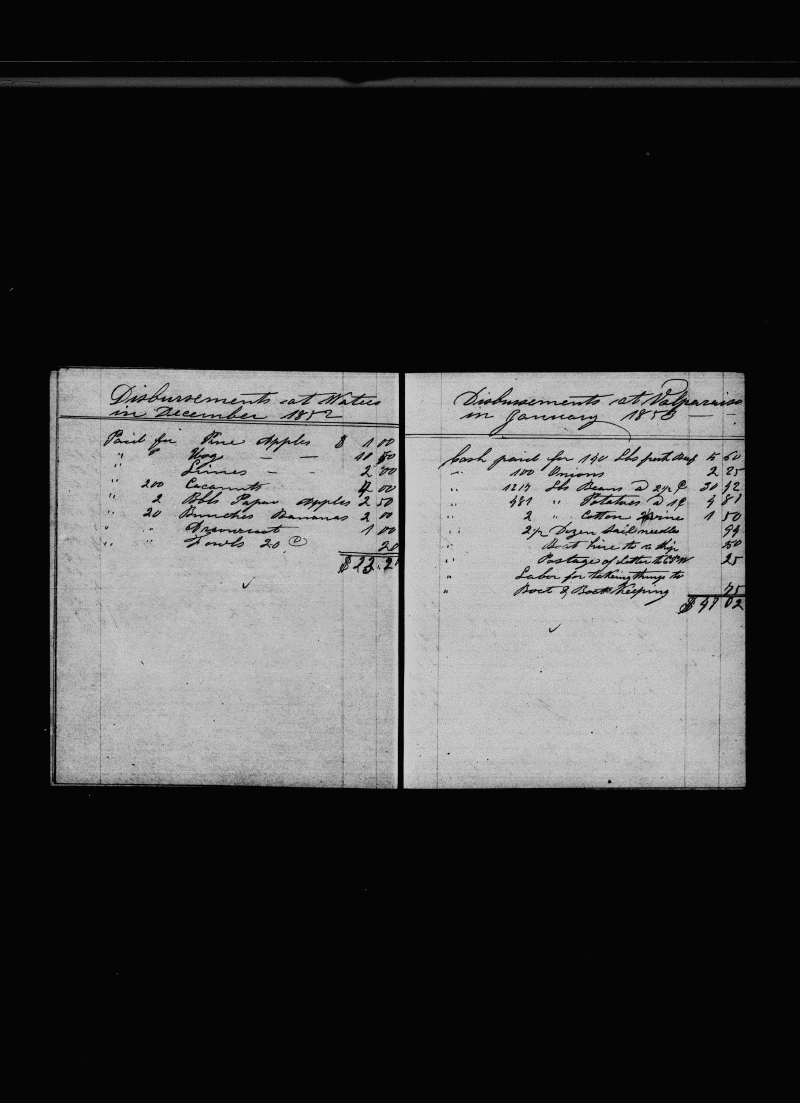 Disbursements at Wateeo
in December 1852
Paid for Pine Apples $ 1 00
" " Hog — — 10 50
" Limes — — 2 00
" 200 Cocanuts 4 00
" 2 Bbls Paper Apples 2 50
" 20 Bunches Bananas 2 00
" " 1 00
" " Fowls 20 @ 20
$23.2
Disbursements at Valparaiso
in January 1853
Cash paid for 140 Lbs fresh Beef 5 60
" 100 Onions 2 25
" 1217 Lbs Beans 30 42
" 481 " Potatoes 1¢ 4 81
" 2 " Cotton Twine 1 50
" Dozen Sail needles 94
" Boat hire to a Ship 50
Postage of Letter 25
" Labor for taking things to
" Boat & Boat Keeping 75
$47 02